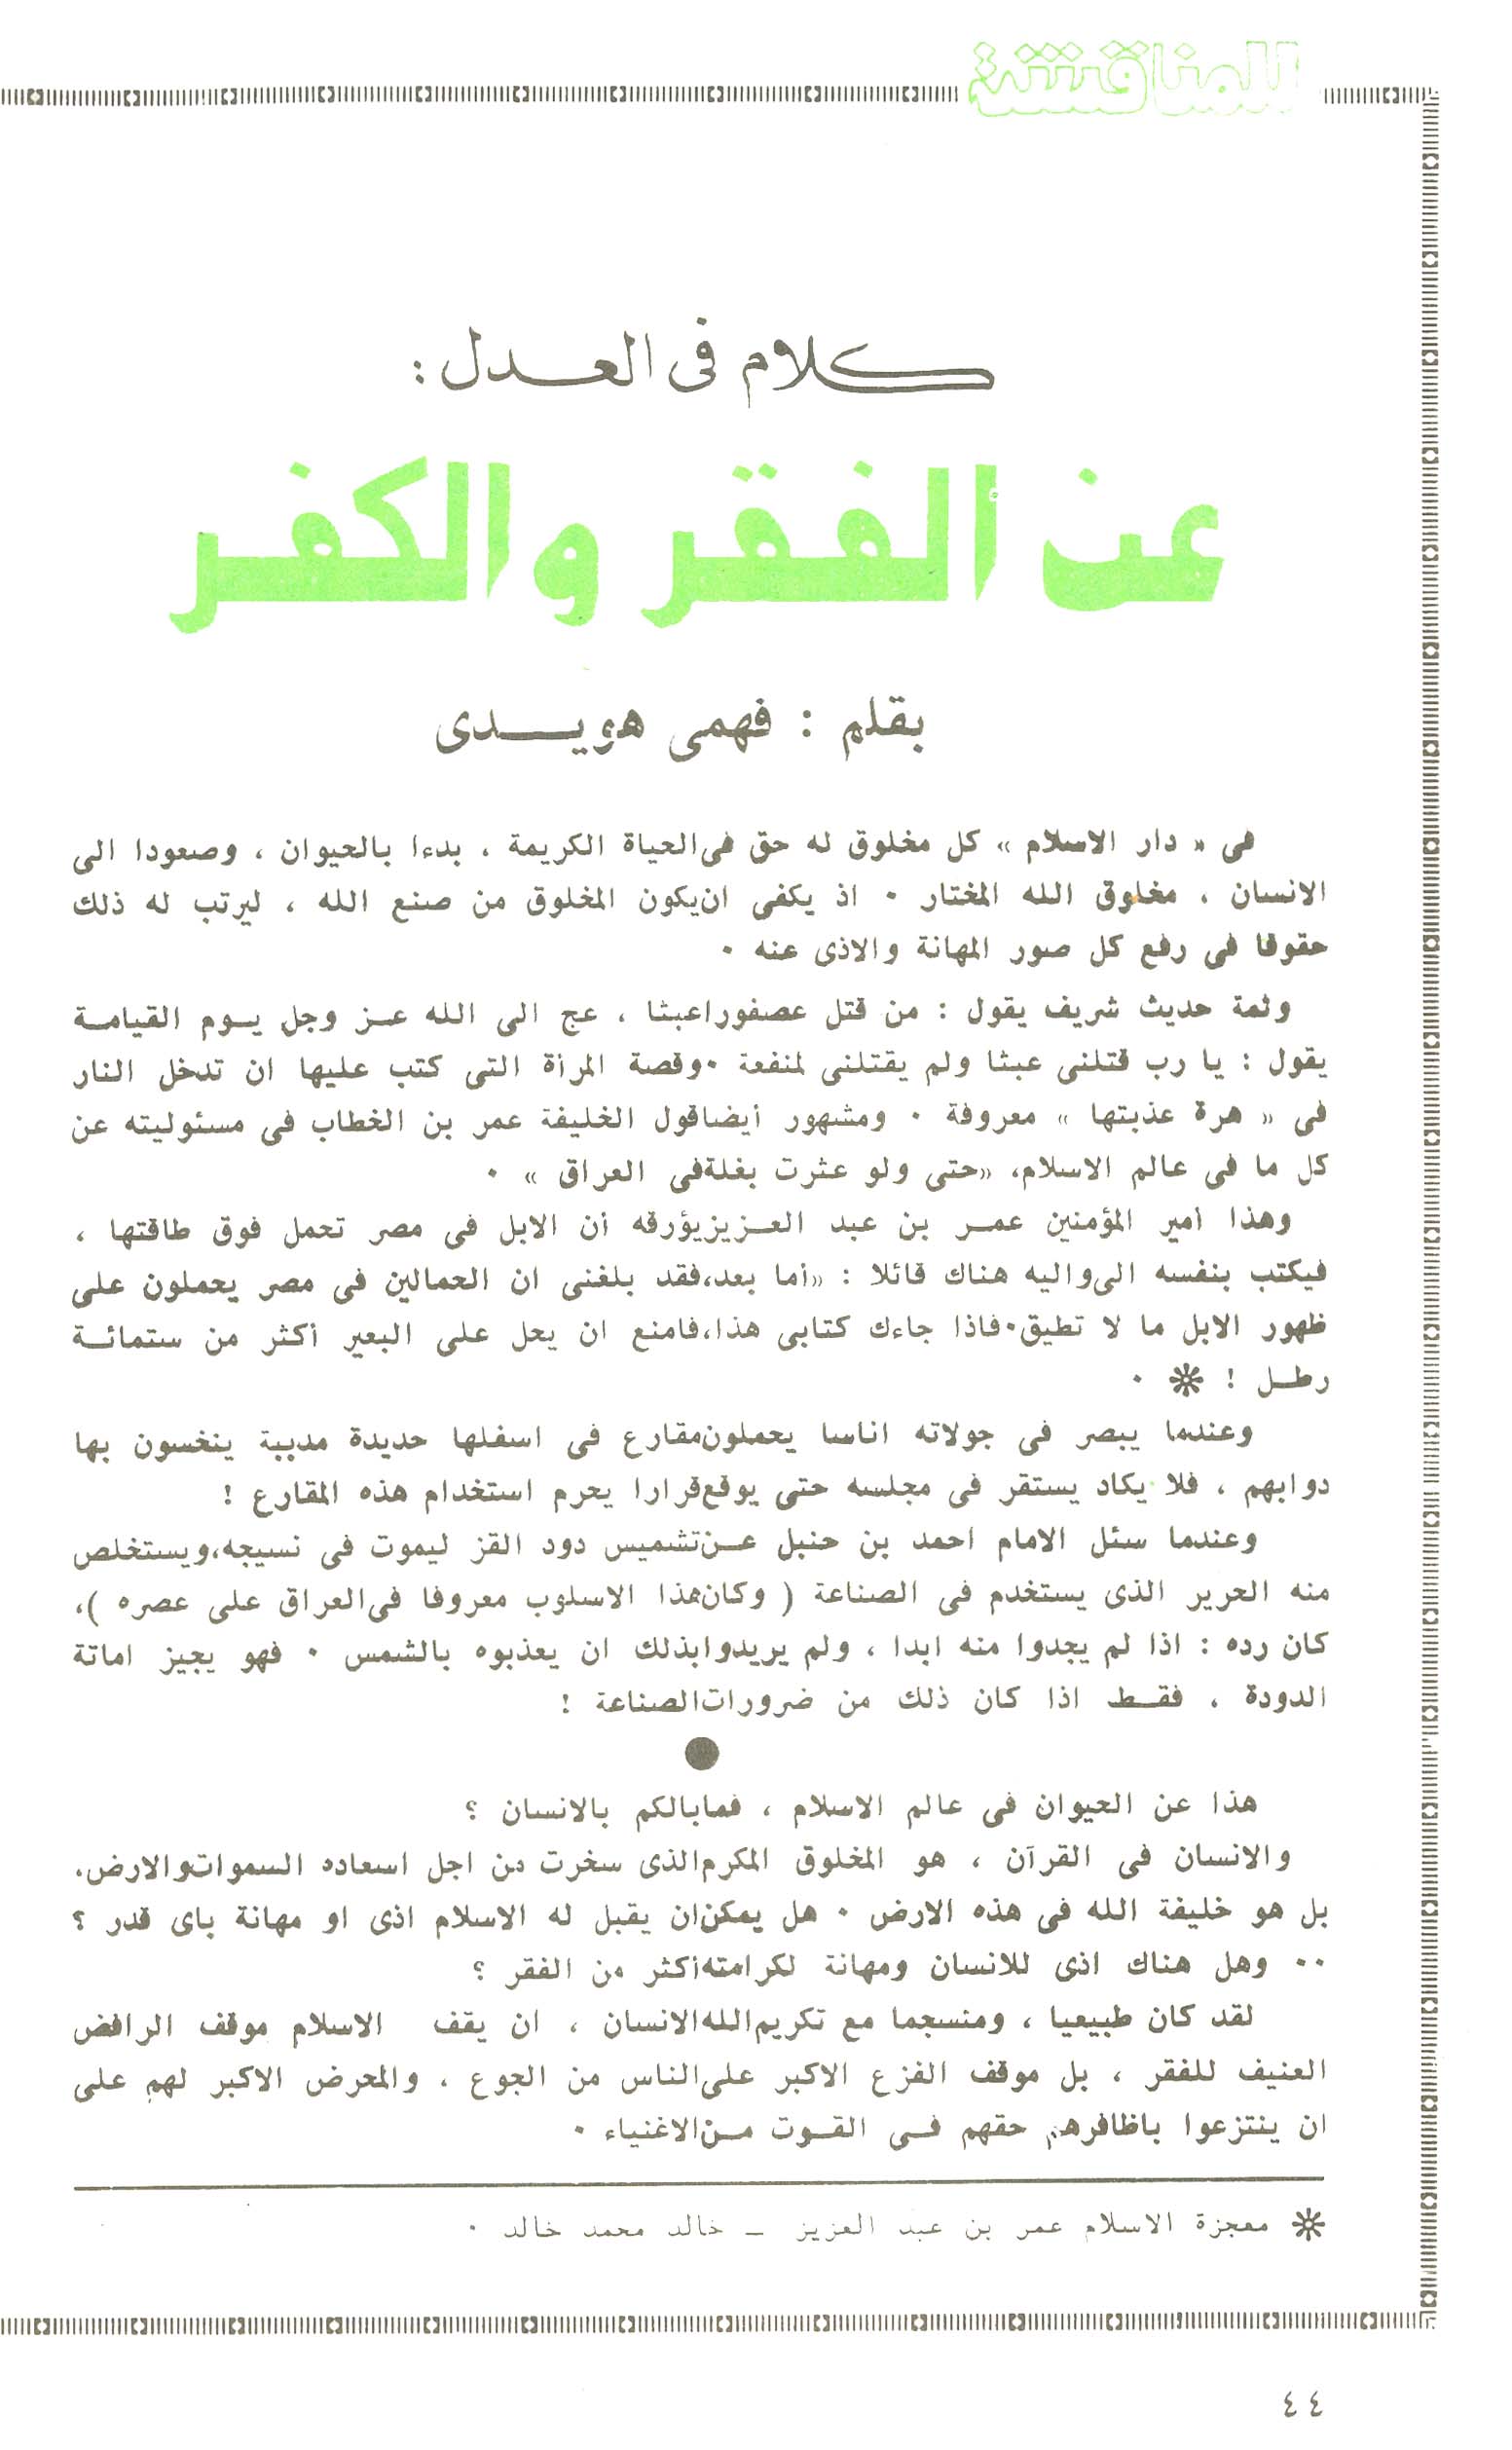 للمناقشة
كلام فى العدل :
عن الفقر والكفر
بقلم : فهمى هويدى
فى « دار الاسلام » كل مخلوق له حق فى الحياة الكريمة ، بدءا بالحيوان ، وصعودا الى
الانسان ، مخلوق الله المختار ٠ اذ يكفى ان يكون المخلوق من صنع الله ، ليرتب له ذلك
حقوقا فى رفع كل صور المهانة والاذى عنه ٠
وثمة حديث شريف يقول : من قتل عصفورا عبثا ، عج الى الله عز وجل يوم القيامة
يقول : يا رب قتلنى عبثا ولم يقتلنى لمنفعة ٠ وقصة المرأة التى كتب عليها ان تدخل النار
فى « هرة عذبتها » معروفة ٠ ومشهور أيضا قول الخليفة عمر بن الخطاب فى مسئوليته عن
كل ما فى عالم الاسلام، «حتى ولو عثرت بغلة فى العراق » ٠
وهذا أمير المؤمنين عمر بن عبد العزيز يؤرقه أن الابل فى مصر تحمل فوق طاقتها ،
فيكتب بنفسه الى واليه هناك قائلا : «أما بعد، فقد بلغنى ان الحمالين فى مصر يحملون على
ظهور الابل ما لا تطيق ٠ فاذا جاءك كتابى هذا، فامنع ان يحل على البعير أكثر من ستمائة
رطل ! ❋ ٠
وعندما يبصر فى جولاته اناسا يحملون مقارع فى اسفلها حديدة مدببة ينخسون بها
دوابهم ، فلا يكاد يستقر فى مجلسه حتى يوقع قرارا يحرم استخدام هذه المقارع !
وعندما سئل الامام احمد بن حنبل عن تشميس دود القز ليموت فى نسيجه، ويستخلص
منه الحرير الذى يستخدم فى الصناعة ( وكان هذا الاسلوب معروفا فى العراق على عصره )،
كان رده : اذا لم يجدوا منه ابدا ، ولم يريدوا بذلك ان يعذبوه بالشمس ٠ فهو يجيز اماتة
الدودة ، فقط اذا كان ذلك من ضرورات الصناعة !
هذا عن الحيوان فى عالم الاسلام ، فما بالكم بالانسان ؟
والانسان فى القرآن ، هو المخلوق المكرم الذى سخرت من اجل اسعاده السموات والارض،
بل هو خليفة الله فى هذه الارض ٠ هل يمكن ان يقبل له الاسلام اذى او مهانة باى قدر ؟
٠٠ وهل هناك اذى للانسان ومهانة لكرامته أكثر من الفقر ؟
لقد كان طبيعيا ، ومنسجما مع تكريم الله الانسان ، ان يقف الاسلام موقف الرافض
العنيف للفقر ، بل موقف الفزع الاكبر على الناس من الجوع ، والمحرض الاكبر لهم على
ان ينتزعوا باظافرهم حقهم فى القوت من الاغنياء ٠
❋ معجزة الاسلام عمر بن عبد العزيز ـ خالد محمد خالد ٠
٤٤